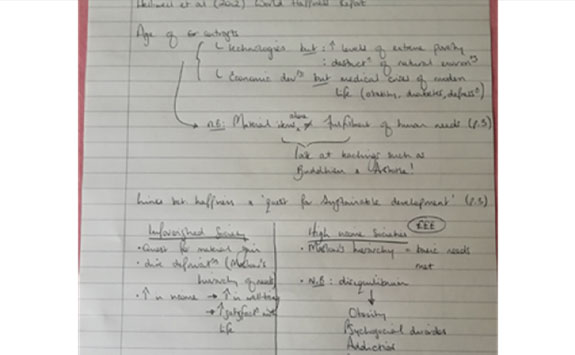 Helliwell et al (2012) World Happiness Report
Age of contrasts
↳ technologies but : ↑ levels of extreme poverty
: destruct° of natural environ
↳ Economic dev but medical crises of modern
life (obesity, diabetes, depress°)
→ N.B: Material alone ≠ fulfilment of human needs (p.3)
Look at teachings such as
Buddhism &
Links bet happiness & 'quest for sustainable development' (p.3)
Society
High income Societies £EE
• Quest for material gain
• dire (Maslow's
hierarchy of needs)
• ↑ in income → ↑ in
→ ↑ satisfact° with
life
• Maslow's hierarchy = basic needs
met
• N.B : disequilibrium
↓
Obesity
Psychosocial disorders
Addiction